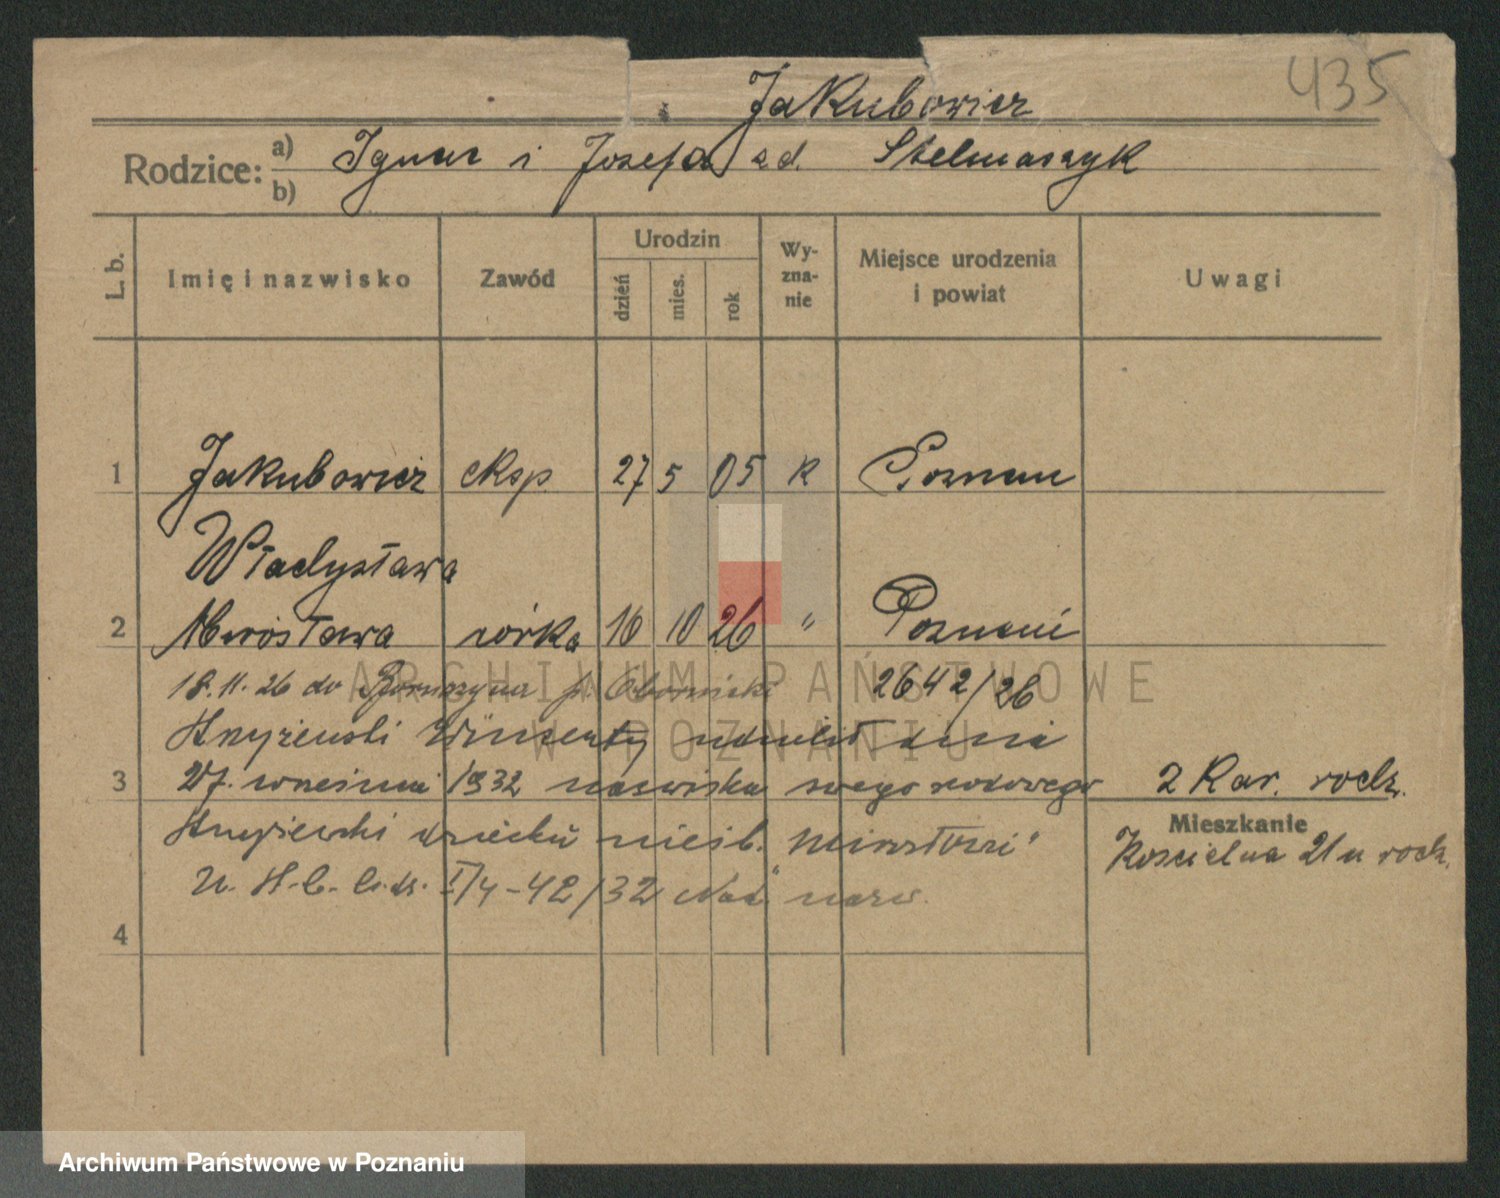 435
Jakubowicz
Rodzice: a) Ignac i Józefa z d. Stelmaszyk
b)
L. b. Imię i nazwisko Zawód Urodzin dzień mies. rok Wyznanie Miejsce urodzenia i powiat Uwagi
1 Jakubowicz eksp. 27 5 05 k Poznań
Władysława
2 Mirosława córka 16 10 26 " Poznań
18.11.26 do p. Obornicki 2642/26
Wincenty udzielił dnia
3 27. września 1932 nazwiska swego rodowego 2 Kar. rodz.
dziecku nieśl. "Mirosławie" Mieszkanie
Kościelna 21 u rodz.
I/4-42/32 nazw.
4
ARCHIWUM PAŃSTWOWE
W POZNANIU
Archiwum Państwowe w Poznaniu